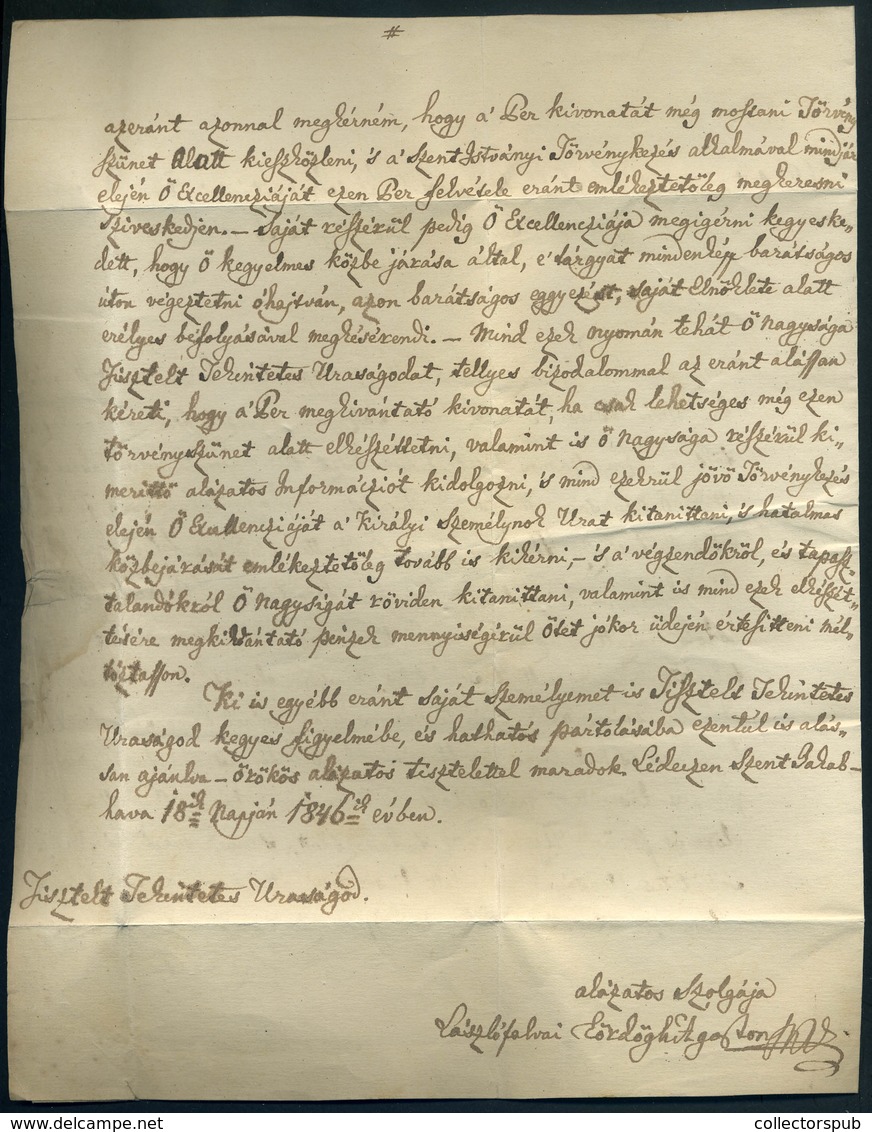 #
azeránt azonnal megkérném, hogy a' Per kivonatát még mostani Törvény
szünet alatt kieszközleni, 's a' Szent Istványi Törvénykezés alkalmával mindjár
elején Ő Excellencziáját ezen Per felvésele eránt emlékeztetőleg megkeresni
sziveskedjen. – Saját részérül pedig Ő Excellencziája megigérni kegyeske„
dett, hogy Ő kegyelmes közbe járása által, e' tárgyat mindenkép barátságos
úton végeztetni óhajtván, azon barátságos eggyezést, saját Elnöklete alatt
erélyes béfolyásával megkésérendi. – Mind ezek nyomán tehát Ő Nagysága
Tisztelt Tekintetes Uraságodat, tellyes bizodalommal az eránt alássan
kéreti, hogy a' Per megkivántató kivonatát, ha csak lehetséges még ezen
törvényszünet alatt elkészéttetni, valamint is Ő Nagysága részérül ki„
merittő alázatos Informácziót kidolgozni, 's mind ezekrül jövö Törvénykezés
elején Ő Excellencziáját a' Királyi Személynok Urat kitanittani, 's hatalmas
közbejárását emlékeztetőleg tovább is kikérni, – 's a' végzendőkröl, és tapasz„
talandókról Ő Nagyságát röviden kitanittani, valamint is mind ezek elkészit„
tésére megkivántató pénzek mennyiségérül Őtet jókor üdején értesitteni mél„
tóztasson.
Ki is egyébb eránt saját személyemet is Tisztelt Tekintetes
Uraságod kegyes figyelmébe, és hathatós pártolásába ezentúl is alás„
san ajánlva – örökös alázatos tisztelettel maradok Lédeczen Szent Jakab –
hava 18ik Napján 1846ik évben.
Tisztelt Tekintetes Uraságod.
alázatos Szolgája
Lászlófalvai Eördögh Ágoston
collectorspub